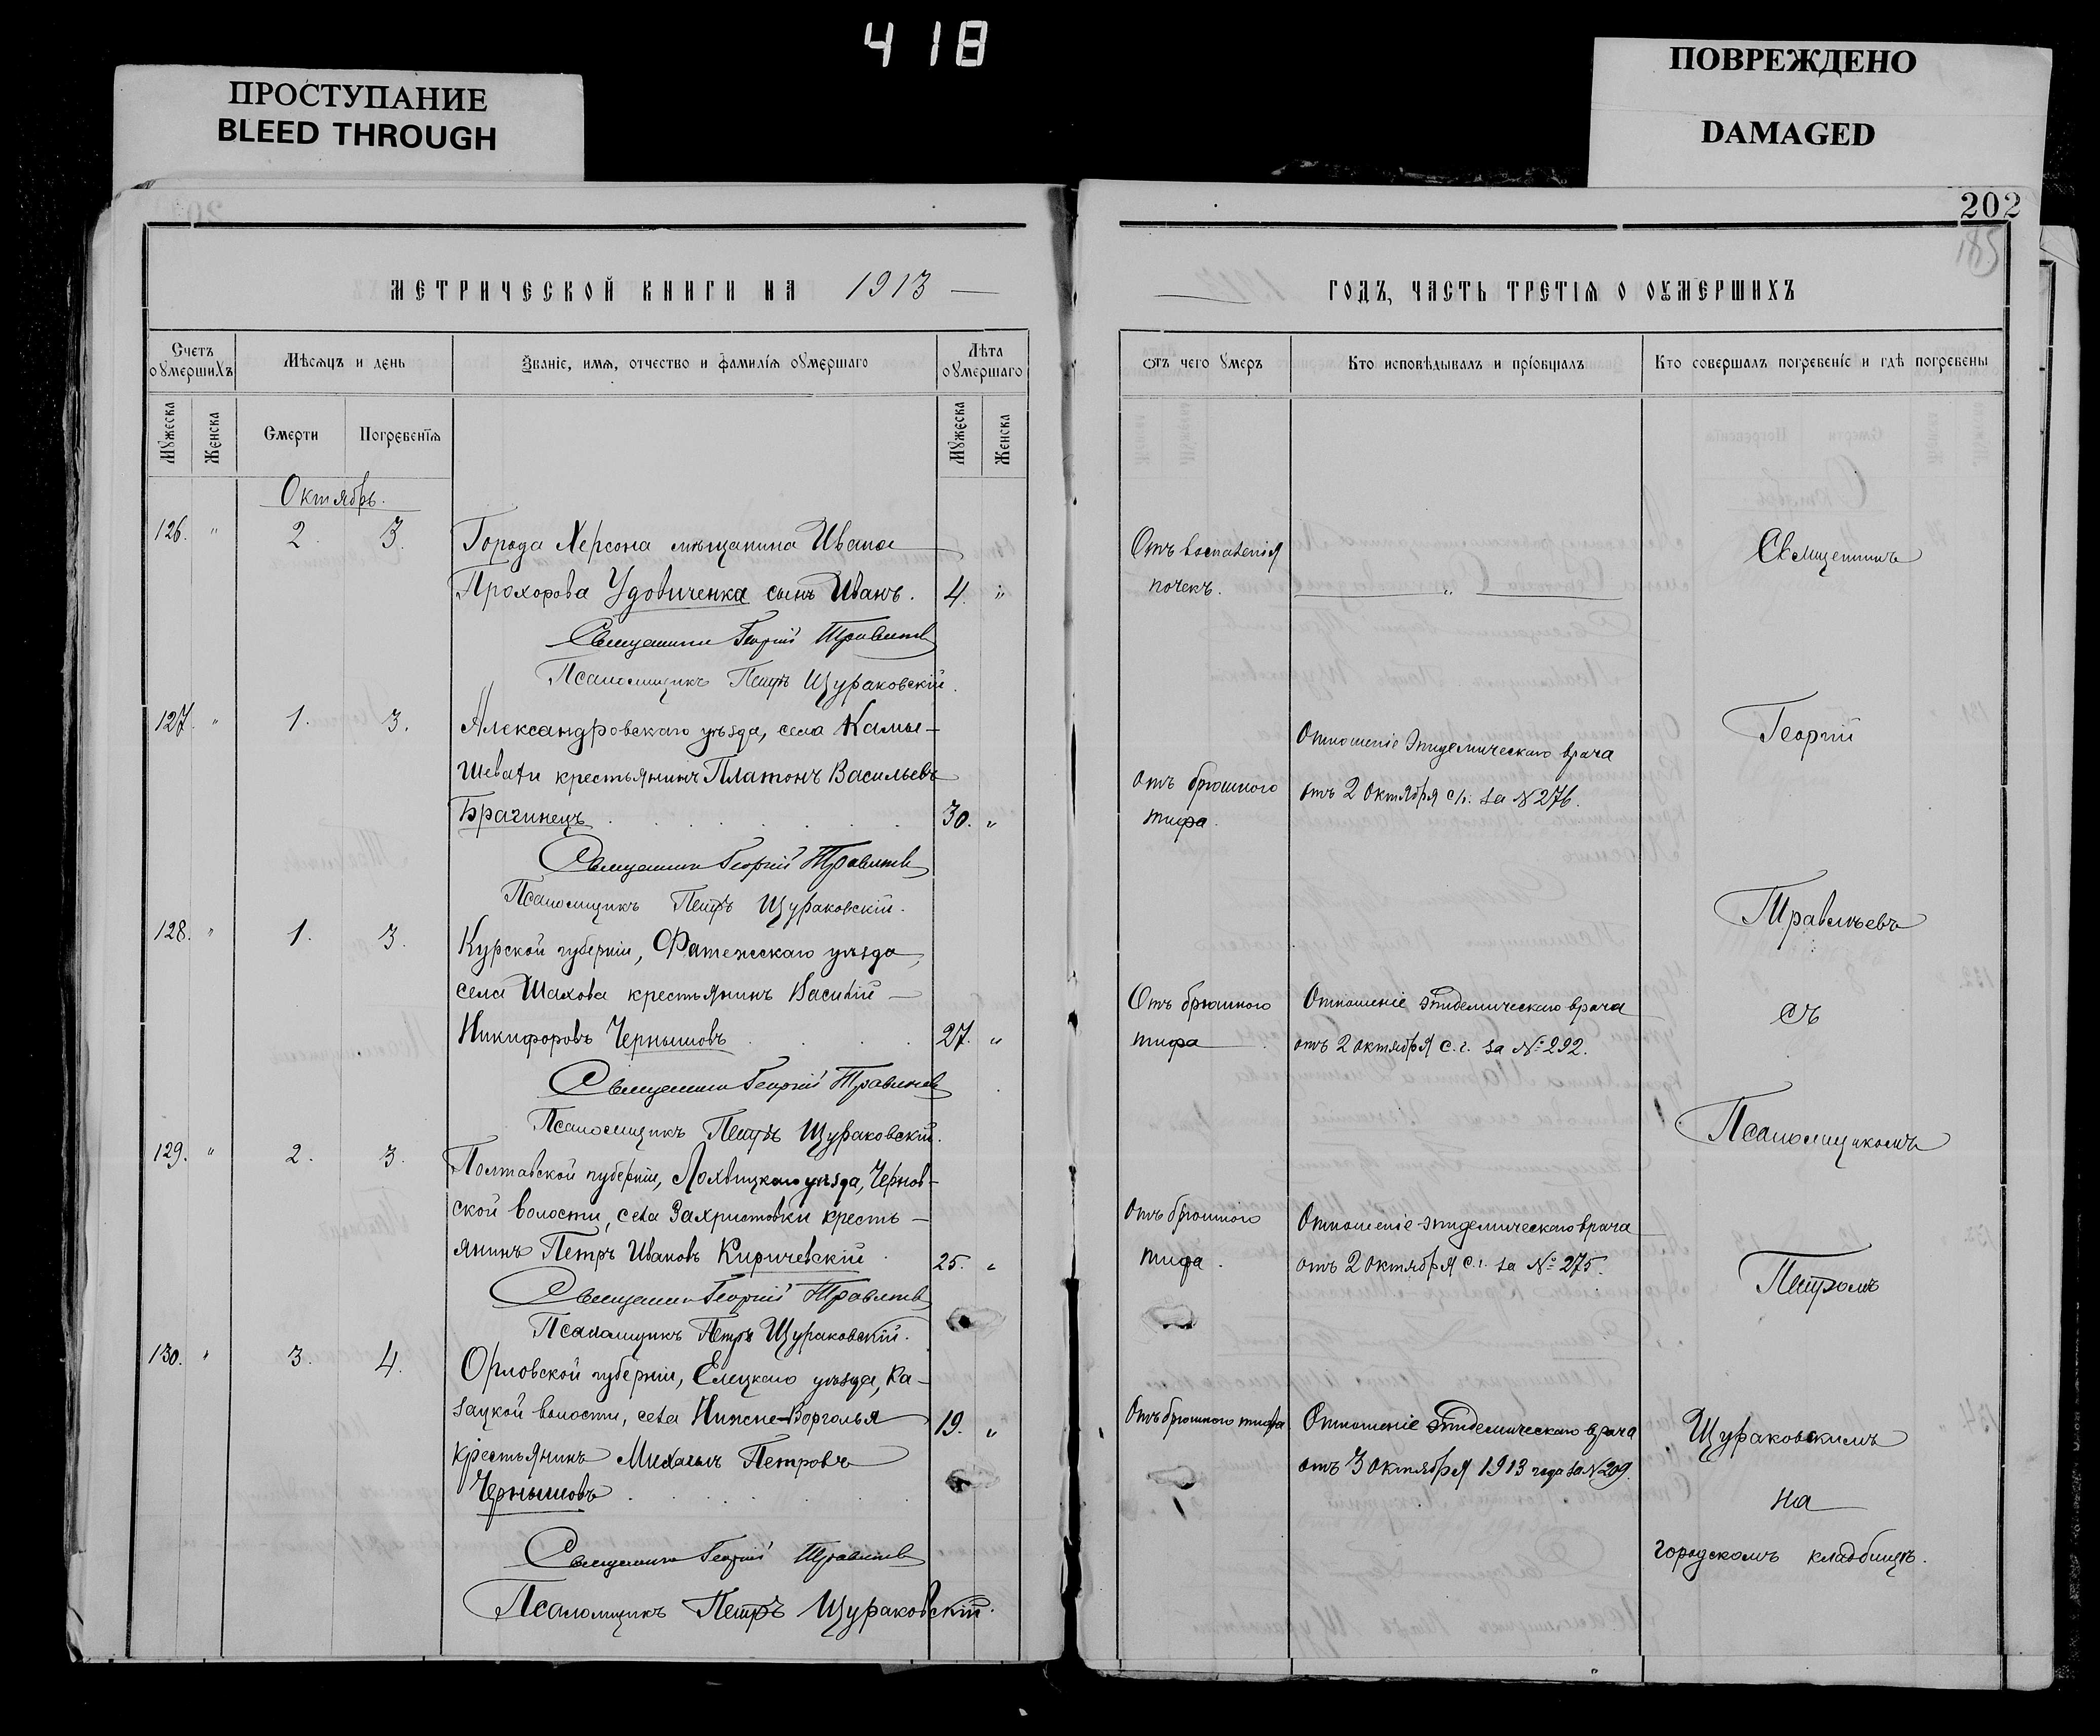 418
ПРОСТУПАНИЕ
BLEED THROUGH
ПОВРЕЖДЕНО
DAMAGED
202
185
МЕТРИЧЕСКОЙ КНИГИ НА 1913
ГОДЪ, ЧАСТЬ ТРЕТІЯ О ОУМЕРШИХЪ
Счетъ оумершихъ
Мѣсяцъ и день
Званіе, имя, отчество и фамилія оумершаго
Лѣта оумершаго
Отъ чего умеръ
Кто исповѣдывалъ и пріобщалъ
Кто совершалъ погребеніе и гдѣ погребены
Мужеска
Женска
Смерти
Погребенія
Мужеска
Женска
Октябрь.
126. " 2 3. Города Херсона мѣщанина Ивана
Прохорова Удовиченка сынъ Иванъ. 4. "
Священникъ Георгій
Псаломщикъ Петръ Щураковскій.
127. " 1. 3. Александровскаго уѣзда, села Камы-
шевати крестьянинъ Платонъ Васильевъ
Брагинецъ 30. "
Священникъ Георгій
Псаломщикъ Петръ Щураковскій.
128. " 1. 3. Курской губерніи, Фатежскаго уѣзда,
села Шахова крестьянинъ Василій
Никифоровъ Чернышовъ 27. "
Священникъ Георгій
Псаломщикъ Петръ Щураковскій.
129. " 2. 3. Полтавской губерніи, Лохвицкаго уѣзда, Чернов-
ской волости, села Захристовки кресть-
янинъ Петръ Ивановъ Киричевскій 25. "
Священникъ Георгій
Псаломщикъ Петръ Щураковскій.
130. " 3. 4. Орловской губерніи, Елецкаго уѣзда, Ка-
зацкой волости, села Нижне-Ворголья 19. "
крестьянинъ Михаилъ Петровъ
Чернышовъ
Священникъ Георгій
Псаломщикъ Петръ Щураковскій.
Отъ воспаленія
почекъ. "
отъ брюшного
тифа.
Отношеніе эпидемическаго врача
отъ 2 Октября с/г. за N 276.
Отъ брюшного
тифа
Отношеніе эпидемическаго врача
отъ 2 октября с.г. за № 292.
Отъ брюшного
тифа.
Отношеніе эпидемическаго врача
отъ 2 октября с.г. за № 275.
Отъ брюшного тифа
Отношеніе эпидемическаго врача
отъ 3 октября 1913 года за N 209.
Священникъ
Георгій
съ
Псаломщикомъ
Петромъ
Щураковскимъ
на
городскомъ кладбищѣ.